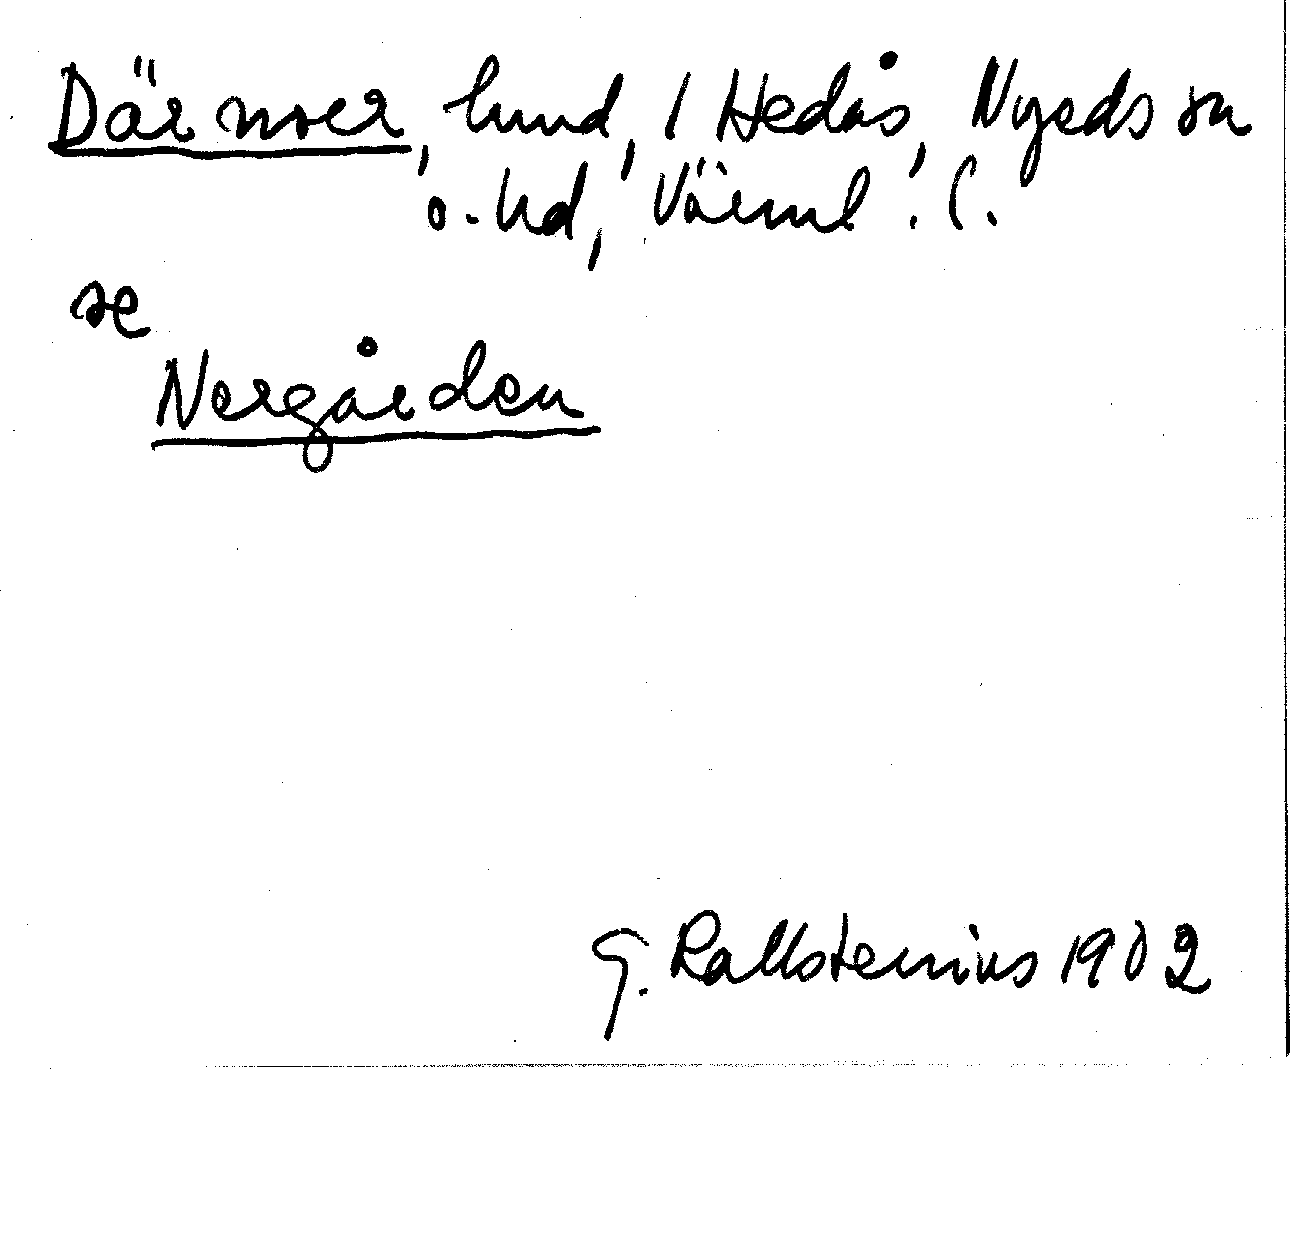 Där noer, hmd, 1 Hedås, Nyeds sn
o. hd, Värml. l.
se
Nergården
G. Kallstenius 1902